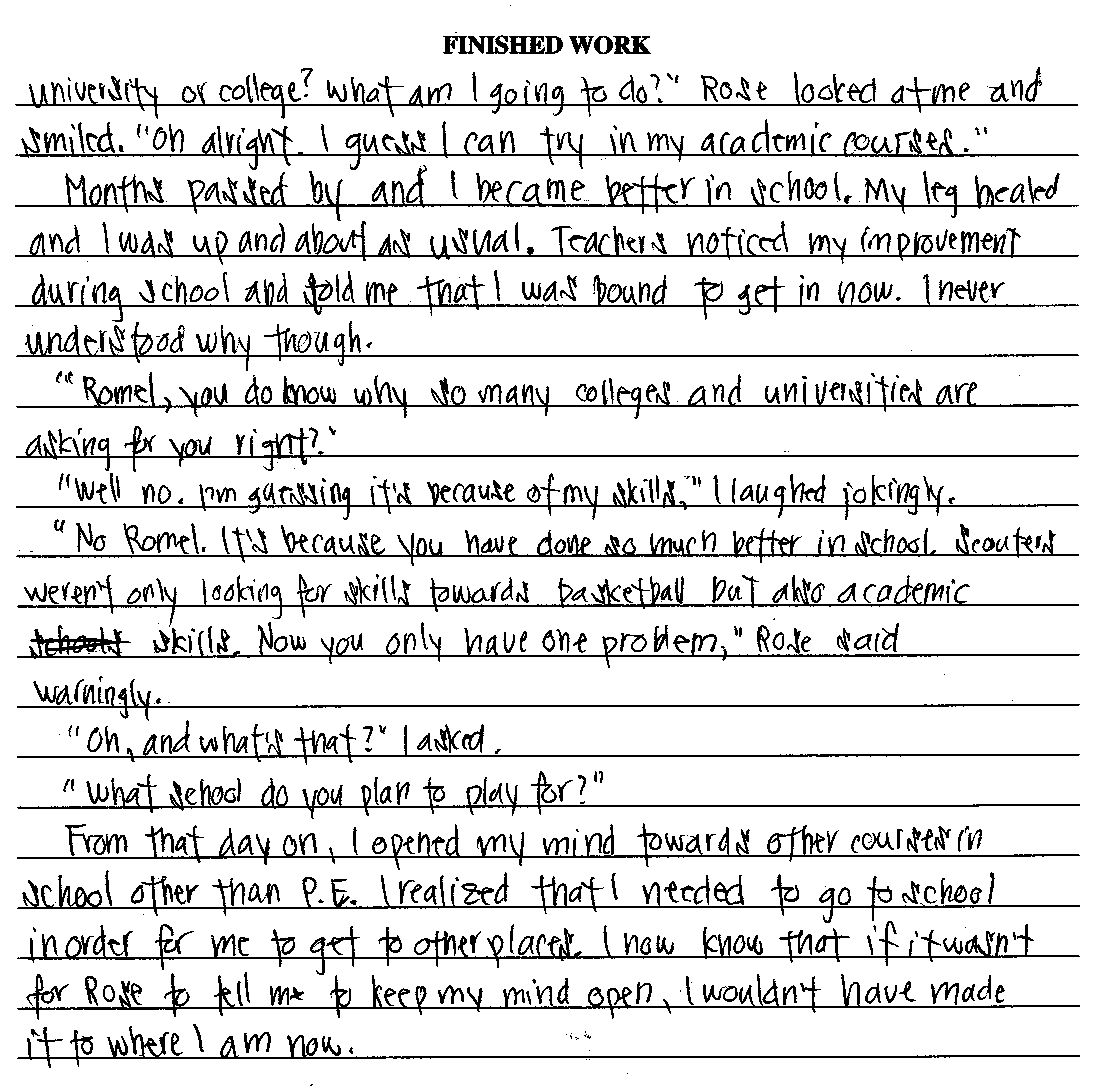 FINISHED WORK
university or college? What am I going to do?" Rose looked at me and
smiled. "Oh alright. I guess I can try in my academic courses."
Months passed by and I became better in school. My leg healed
and I was up and about as usual. Teachers noticed my improvement
during school and told me that I was bound to get in now. I never
understood why though.
"Romel, you do know why so many colleges and universities are
asking for you right?"
"Well no. I'm guessing it's because of my skills," I laughed jokingly.
"No Romel. It's because you have done so much better in school. Scouters
weren't only looking for skills towards basketball but also academic
schools skills. Now you only have one problem," Rose said
warningly.
"Oh, and what's that?" I asked.
"What school do you plan to play for?"
From that day on, I opened my mind towards other courses in
school other than P.E. I realized that I needed to go to school
in order for me to get to other places. I now know that if it wasn't
for Rose to tell me to keep my mind open, I wouldn't have made
it to where I am now.